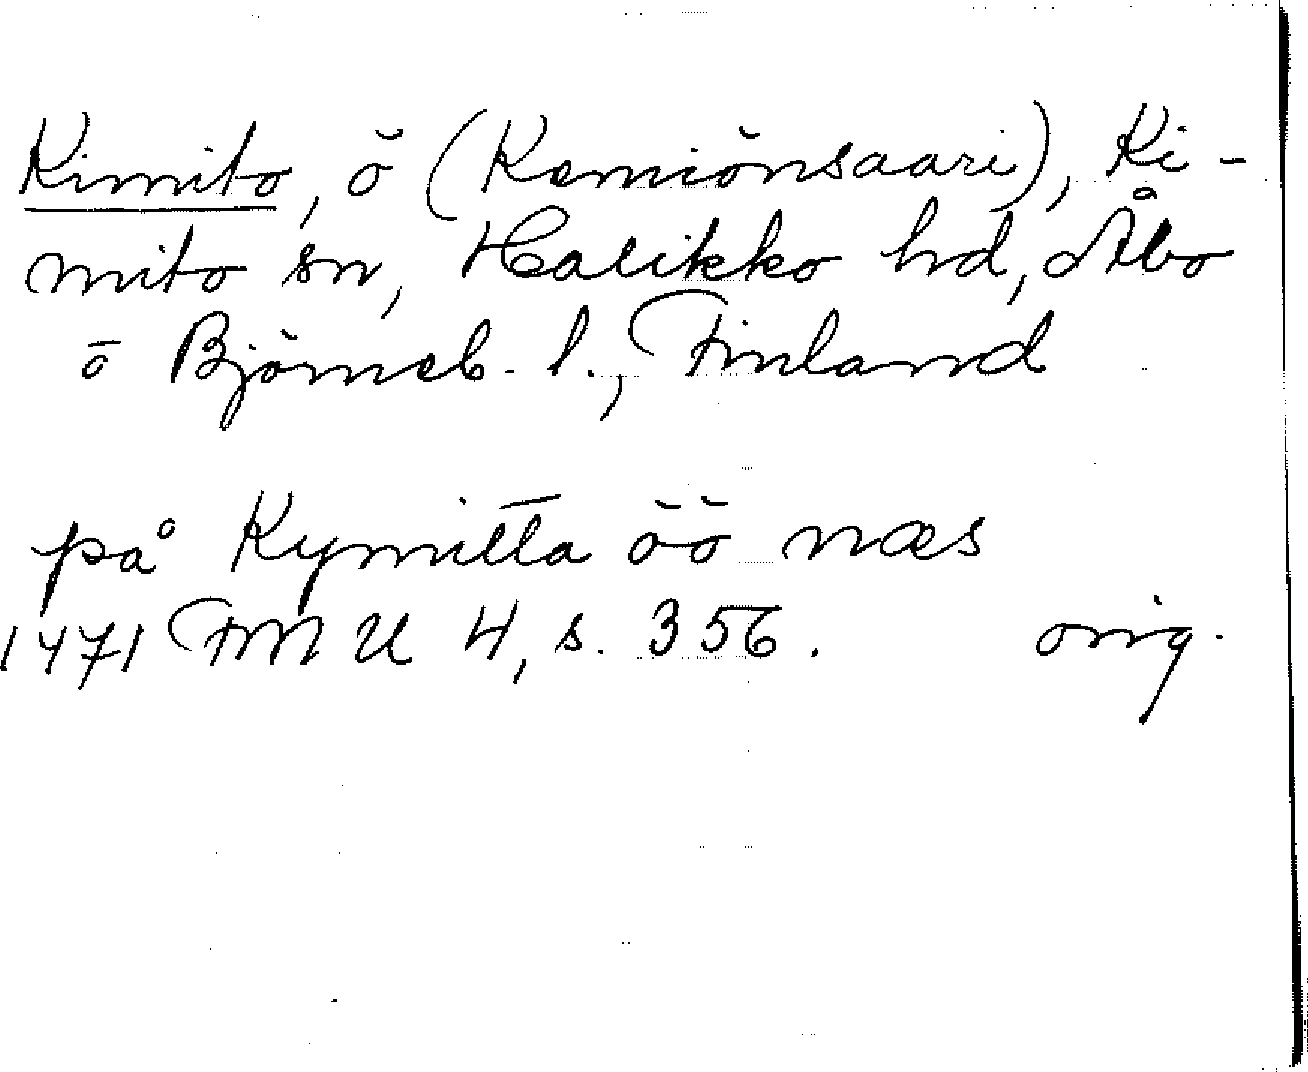 Kimito, ö (Kemiönsaari), Ki-
mito sn, Halikko hd, Åbo
o Björneb. l., Finland
på Kymitta öö næs
1471 FMU 4, s. 356. orig.